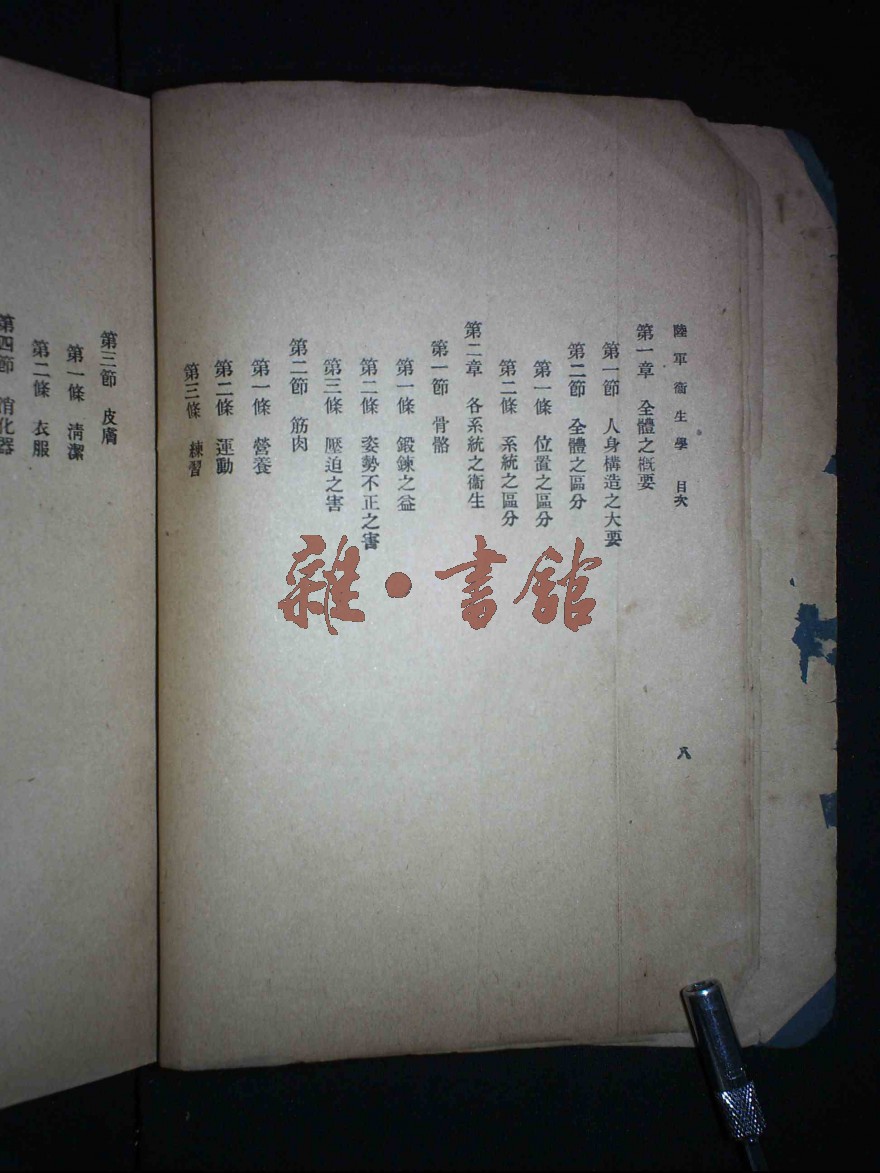 陸軍衞生學 目次
八
第一章 全體之概要
第一節 人身構造之大要
第二節 全體之區分
第一條 位置之區分
第二條 系統之區分
第二章 各系統之衞生
第一節 骨骼
第一條 鍛鍊之益
第二條 姿勢不正之害
第三條 壓迫之害
第二節 筋肉
第一條 營養
第二條 運動
第三條 練習
第三節 皮膚
第一條 清潔
第二條 衣服
第四節 消化器
雜·書館